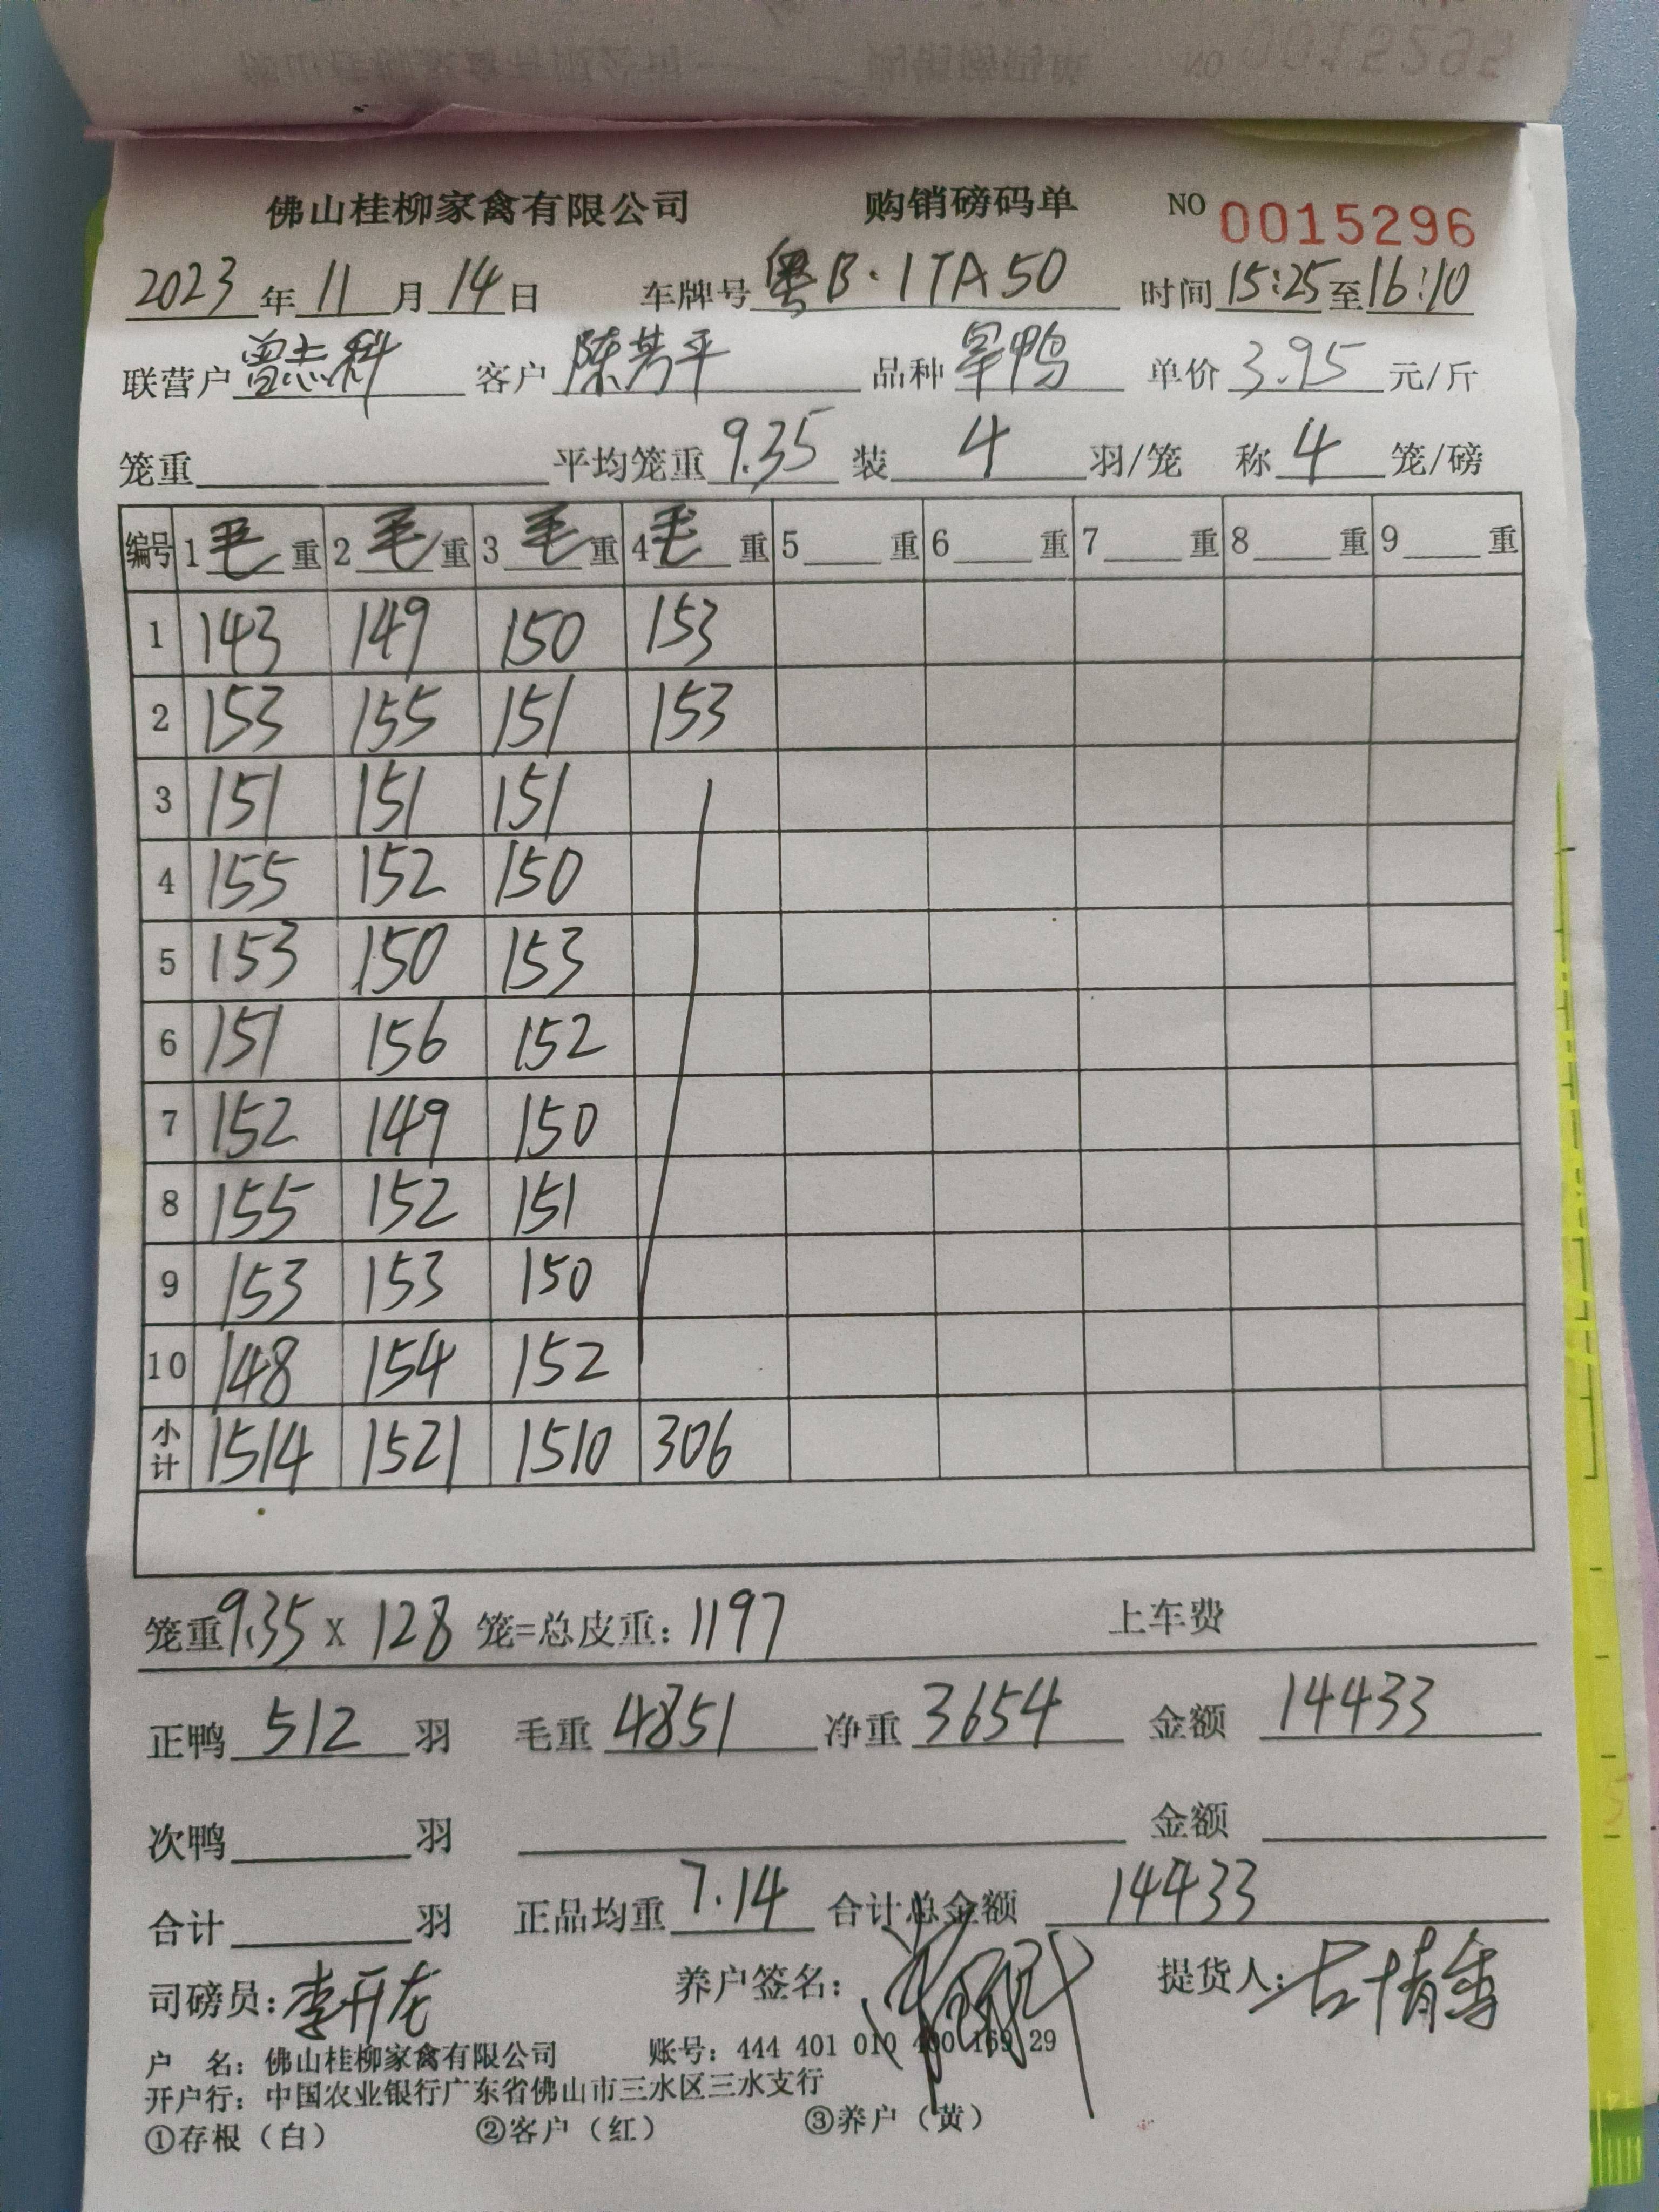 佛山桂柳家禽有限公司 购销磅码单 NO 0015296
2023年11月14日 车牌号粤B·1TA50 时间15:25至16:10
联营户曾志科 客户陈芳平 品种旱鸭 单价3.95元/斤
笼重 平均笼重9.35 装4羽/笼 称4笼/磅
编号 1毛重 2毛重 3毛重 4毛重 5重 6重 7重 8重 9重
1 143 149 150 153
2 153 155 151 153
3 151 151 151
4 155 152 150
5 153 150 153
6 151 156 152
7 152 149 150
8 155 152 151
9 153 153 150
10 148 154 152
小计 1514 1521 1510 306
笼重9.35 X 128笼=总皮重:1197 上车费
正鸭512羽 毛重4851 净重3654 金额14433
次鸭 羽 金额
合计 羽 正品均重7.14 合计总金额14433
司磅员:李开龙 养户签名: 提货人:
户 名:佛山桂柳家禽有限公司 账号:444 401 010 400 169 29
开户行:中国农业银行广东省佛山市三水区三水支行
①存根(白) ②客户(红) ③养户(黄)